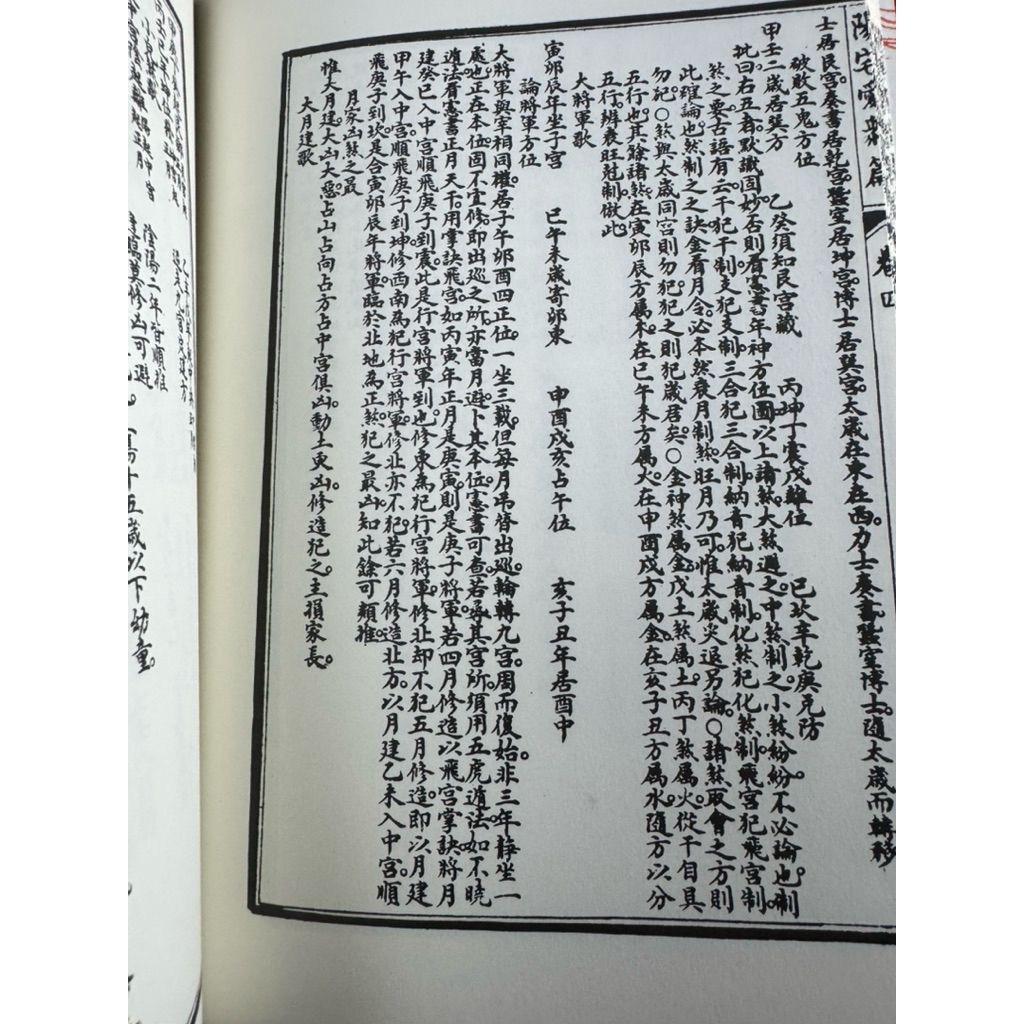 陽宅愛衆篇　卷四
士居艮宮。奏書居乾宮。蠶室居坤宮。博士居巽宮。太歲在東在西。力士奏書蠶室博士。隨太歲而轉移
破敗五鬼方位
甲壬二歲居巽方　乙癸須知艮宮藏　丙坤丁震戊離位　己坎辛乾庚兑防
批曰右五者默識固妙。否則看憲書年神方位圖以上諸煞。大煞避之。中煞制之。小煞紛紛不必論也。制
煞之要古語有云。干犯干制。支犯支制。三合犯三合制。納音犯納音制。化煞犯化煞制。飛宮犯飛宮制。
此確論也。然制之之訣全看月令。必本然衰月制。煞旺月乃可。惟太歲災退另論。○諸煞取會之方則
勿犯。○煞與太歲同宮則勿犯。犯之則犯歲君矣。○金神煞属金。戊土煞属土。丙丁煞属火。從干自具
五行也。其餘諸煞。在寅卯辰方属木。在巳午未方属火。在申酉戌方属金。在亥子丑方属水。隨方以分
五行。辨衰旺尅制倣此。
大將軍歌
寅卯辰年坐子宮　巳午未歲寄卯東　申酉戌亥占午位　亥子丑年居酉中
論將軍方位
大將軍與宰相同權。居子午卯酉四正位。一坐三載。但每月吊替出巡。輪轉九宮。周而復始。非三年靜坐一
處也。正在本位固不宜修。即出巡之所。亦當月避卜其本位。憲書可查。若尋其宮所。須用五虎遁法。如不曉
遁法。看憲書正月天干。用掌訣飛宮。如丙寅年正月是庚寅。則是庚子將軍。若四月修造。以飛宮掌訣將月
建癸巳入中宮。順飛庚子到震。此是行宮將軍到也。修東為犯行宮將軍。修北却不犯。五月修造即以月建
甲午入中宮。順飛庚子到坤。修西南為犯行宮將軍。修北亦不犯。若六月修造北方。以月建乙未入中宮。順
飛庚子到坎。是合寅卯辰年將軍。臨於北地為正煞。犯之最凶。知此餘可類推。
月家凶煞之最
惟大月建大凶大惡。占山占向占方占中宮俱凶。動土更凶。修造犯之。主損家長。
大月建歌
陰陽二年皆順推
修凶可避
十五歲以下幼童。